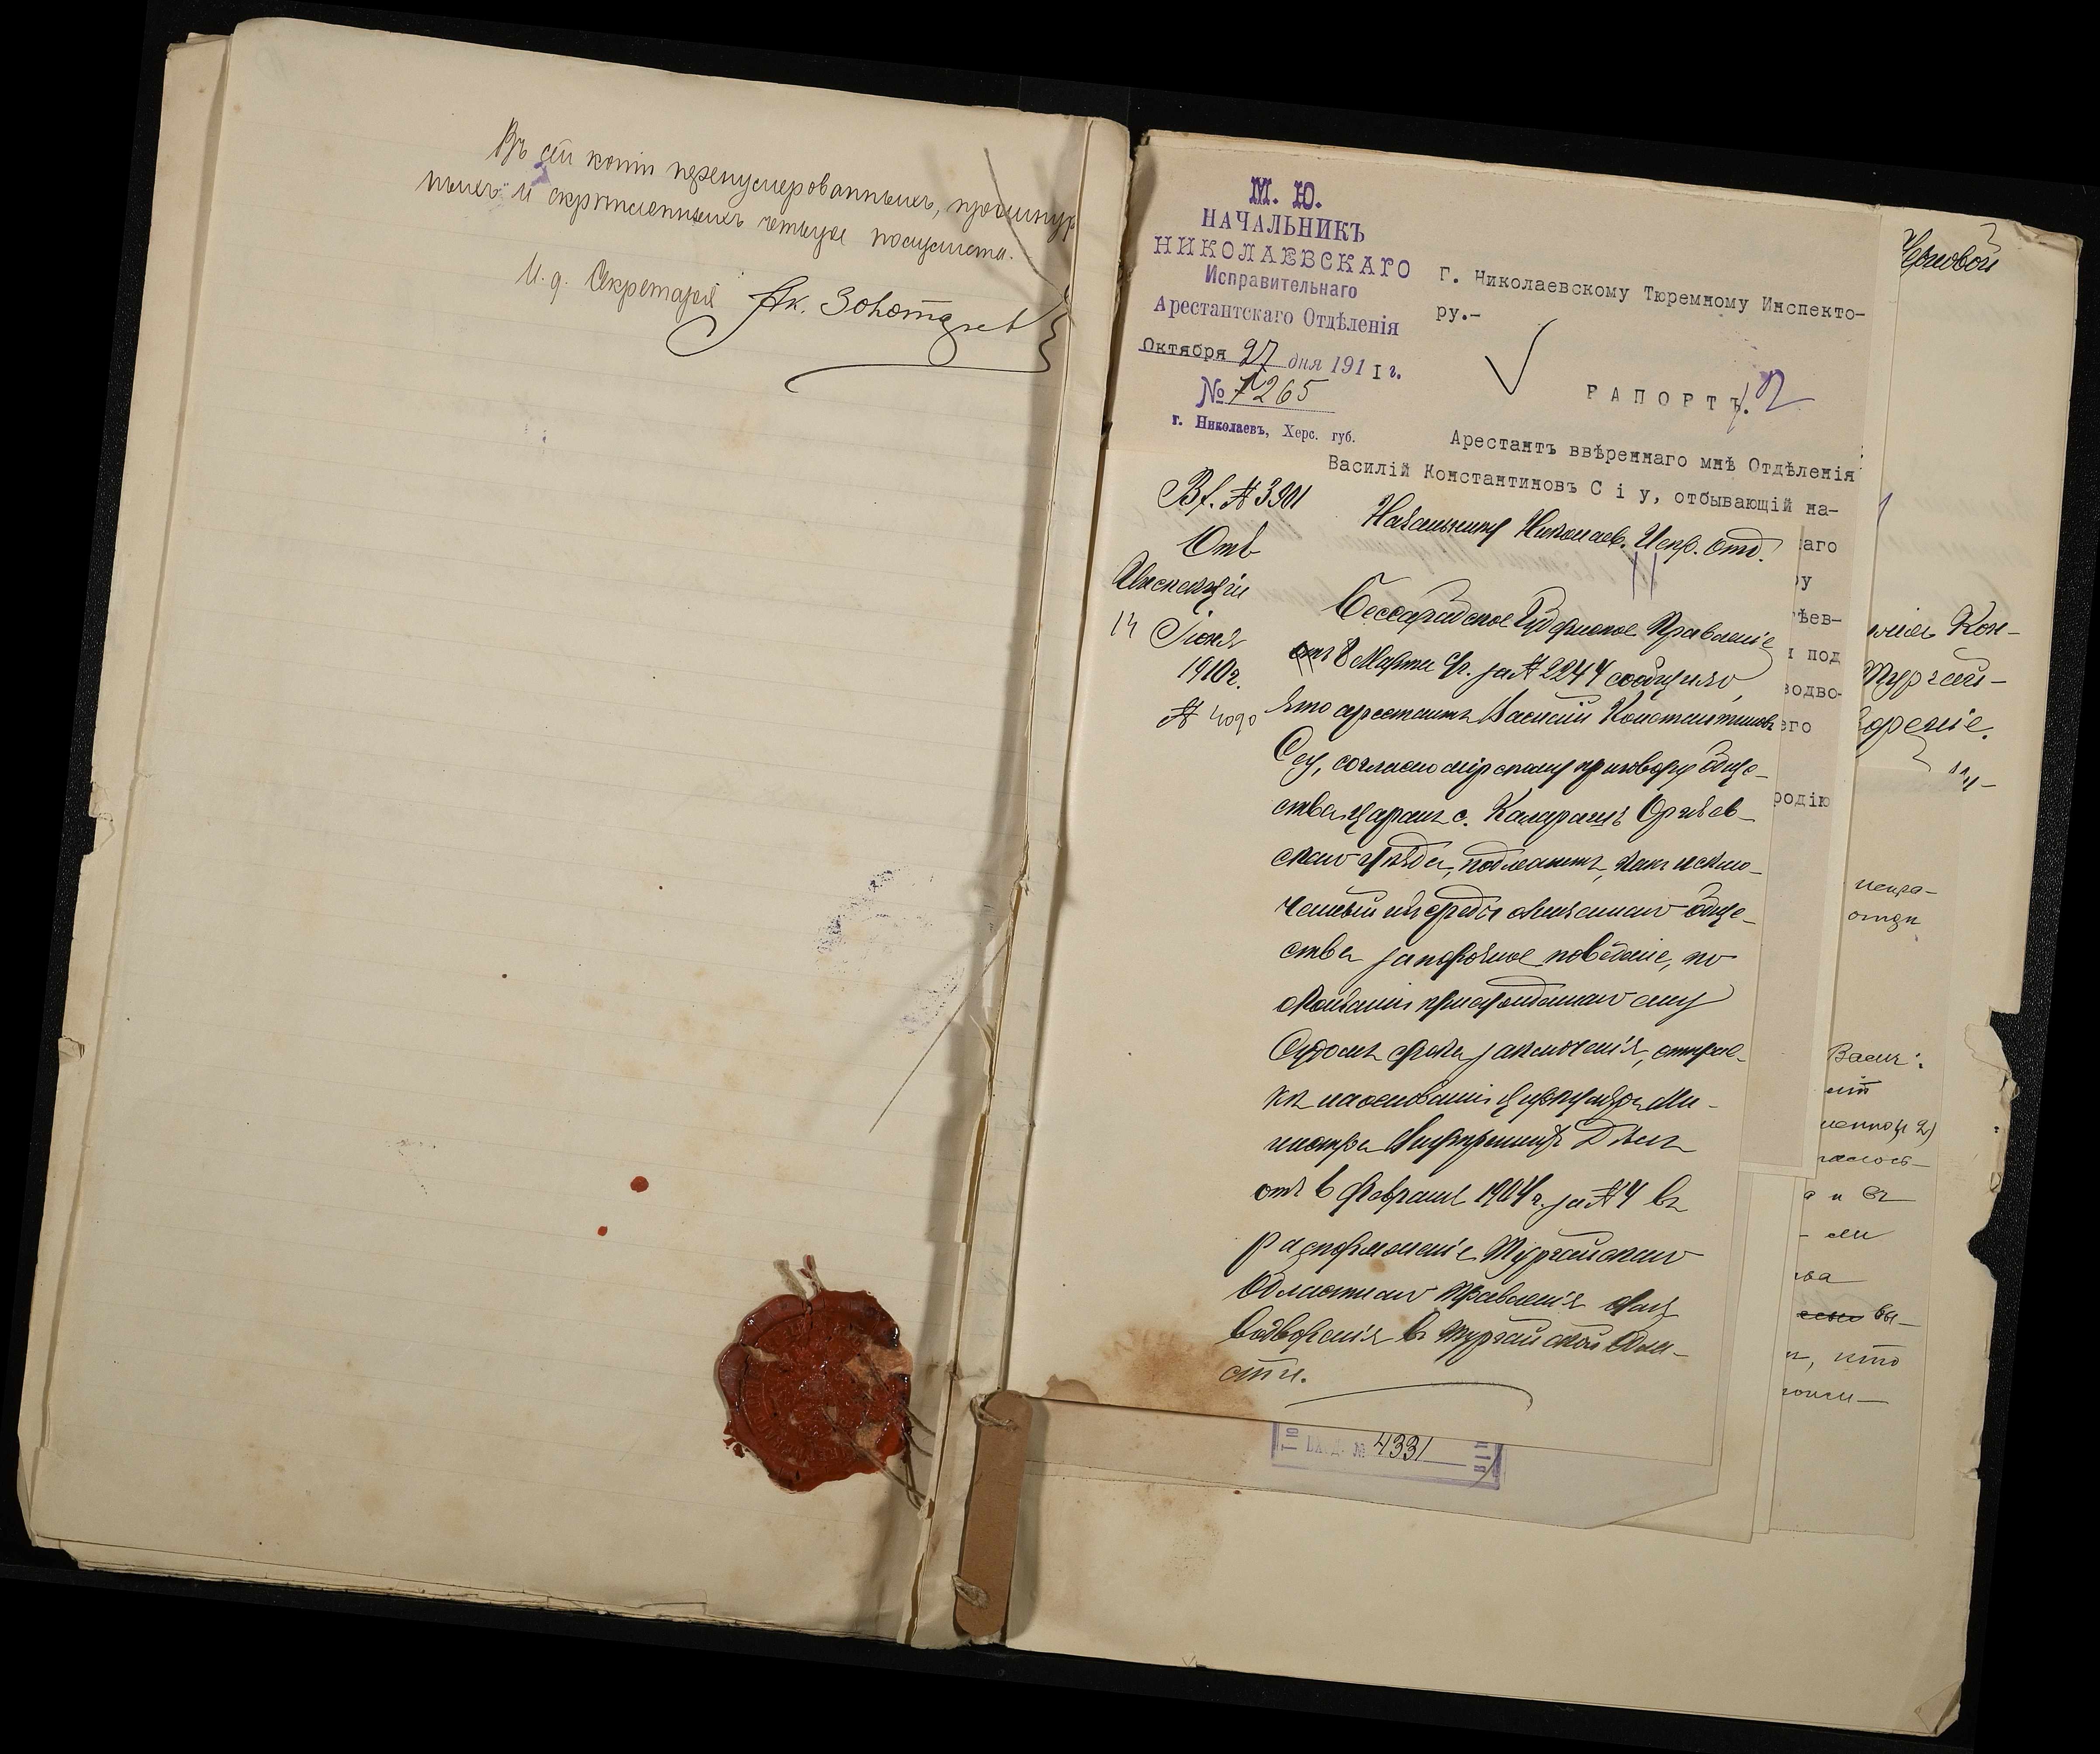 Въ сей копіи перенумерованныхъ, прошнур
ныхъ и скрѣпленныхъ четыре полулиста.
И. д. Секретаря
М. Ю.
НАЧАЛЬНИКЪ
НИКОЛАЕВСКАГО
Исправительнаго
Арестантскаго Отдѣленія
Октября 27 дня 1911 г.
№ 7265
г. Николаевъ, Херс. губ.
Г. Николаевскому Тюремному Инспекто-
ру.-
РАПОРТЪ.
Арестантъ ввѣреннаго мнѣ Отдѣленія
Василій Константиновъ С і у, отбывающій на-
аго
ѣев-
под
водво-
его
родію
№ 3901
Отв
Инспекціи
14 Іюня
1910 г.
Начальнику Николаев. Испр. отд.
Бессарабское Губернское Правленіе
отъ 8 Марта с/г. за № 2244 сообщило,
что арестантъ Василій Константиновъ
Сеу, согласно мірскому приговору обще-
ства царанъ с. Калараша Оргѣев-
скаго уѣзда, подлежитъ, какъ исклю-
ченный изъ среды означеннаго обще-
ства за порочное поведеніе, по
окончаніи присужденнаго ему
Судомъ срока заключенія, отправ-
кѣ на основаніи циркуляра Ми-
нистра Внутреннихъ Дѣлъ
отъ 6 Февраля 1904 г. за № 4 въ
распоряженіе Тургайскаго
Областнаго Правленія для
водворенія въ Тургайской обла-
сти.
Вход. № 4331
Черновой
Кон-
Тургай-
Васил.
ва
вы-
что